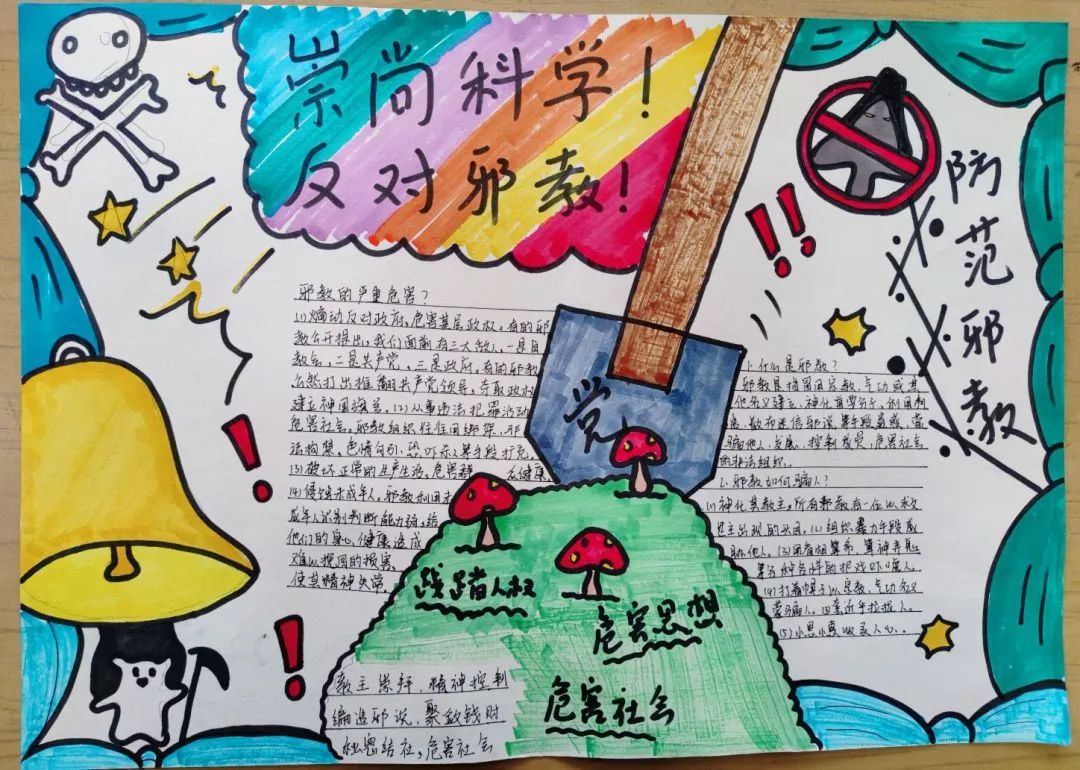 崇尚科学!
反对邪教!
防范邪教
党
邪教的严重危害?
(1)煽动反对政府,危害基层政权,有的邪
教公开提出,我们面前有三大敌人,一是自
教会,二是共产党,三是政府,有的邪教
公然打出推翻共产党领导,夺取政权
建立神国
(2)从事违法犯罪活动
危害社会。邪教组织往往用绑架、非
法拘禁、色情勾引、恐吓杀人等手段扩充。
(3)破坏正常的生产生活,危害群众健康
(4)侵蚀未成年人,邪教利用未
成年人识别判断能力弱,给
他们的身心健康造成
难以挽回的损害,
使其精神失常。
1.什么是邪教?
邪教是指冒用宗教、气功或其
他名义建立、神化首要分子,利用制
造、散布迷信邪说等手段蛊惑、蒙
骗他人,发展、控制成员,危害社会
的非法组织。
2.邪教如何骗人?
(1)神化其教主,所有邪教有一位以救
世主出现的头目,(2)组织暴力手段威
胁他人。(3)用看相算命、算神弄鬼
等各种各样的把戏吓唬人。
(4)打着幌子以宗教、气功名义
蒙骗人。
拉拢人。
(5)小恩小惠收买人心。
践踏人权
危害思想
危害社会
教主崇拜、精神控制
编造邪说、聚敛钱财
秘密结社,危害社会